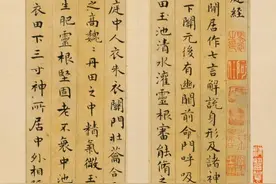 庭經
閒居作七言解說身形及諸神
下關元後有幽闕前命門呼吸
田玉池清水灌靈根審能脩之
庭中人衣朱衣關門壯籥合
之高巍〻丹田之中精氣微玉
生肥靈根堅固老不衰中池
衣田下三寸神所居中外相